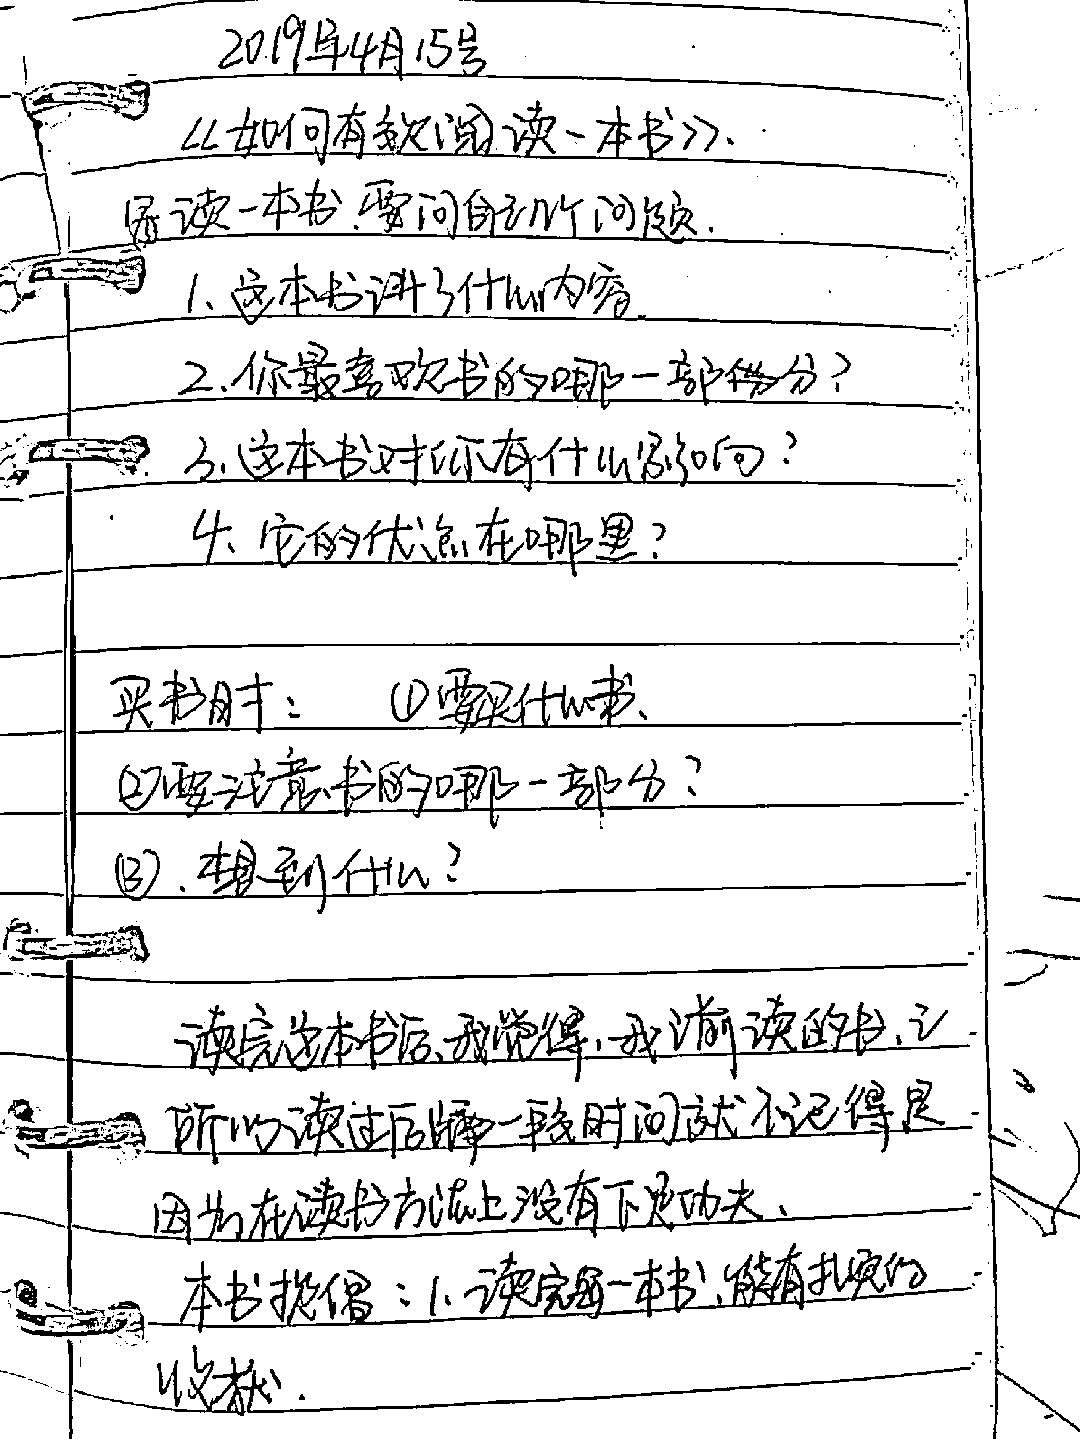 2019年4月15号
《如何有效阅读一本书》.
读一本书,要问自己几个问题.
1、这本书讲了什么内容.
2.你最喜欢书的哪一部份分?
3.这本书对你有什么影响?
4、它的优点在哪里?
买书时: ①要买什么书、
②要注意书的哪一部分?
③.想到什么?
读完这本书后、我觉得,我以前读的书,之
所以读过后隔一段时间就不记得是
因为在读书方法上没有下足功夫、
本书提倡:1、读完每一本书,能有扎实的
收获.